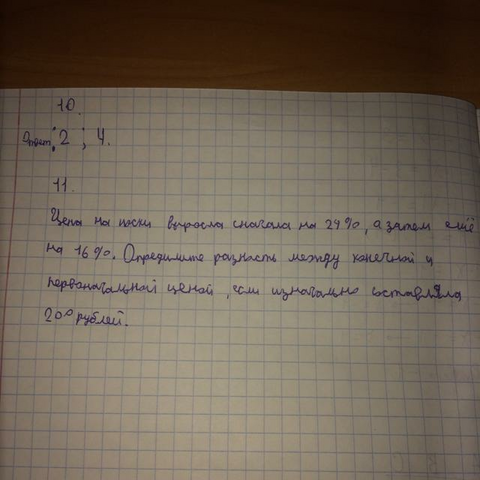 10.
Ответ: 2 ; 4.
11.
Цена на носки выросла сначала на 24%, а затем ещё
на 16%. Определите разность между конечной и
первоначальной ценой, если изначально составляла
200 рублей.